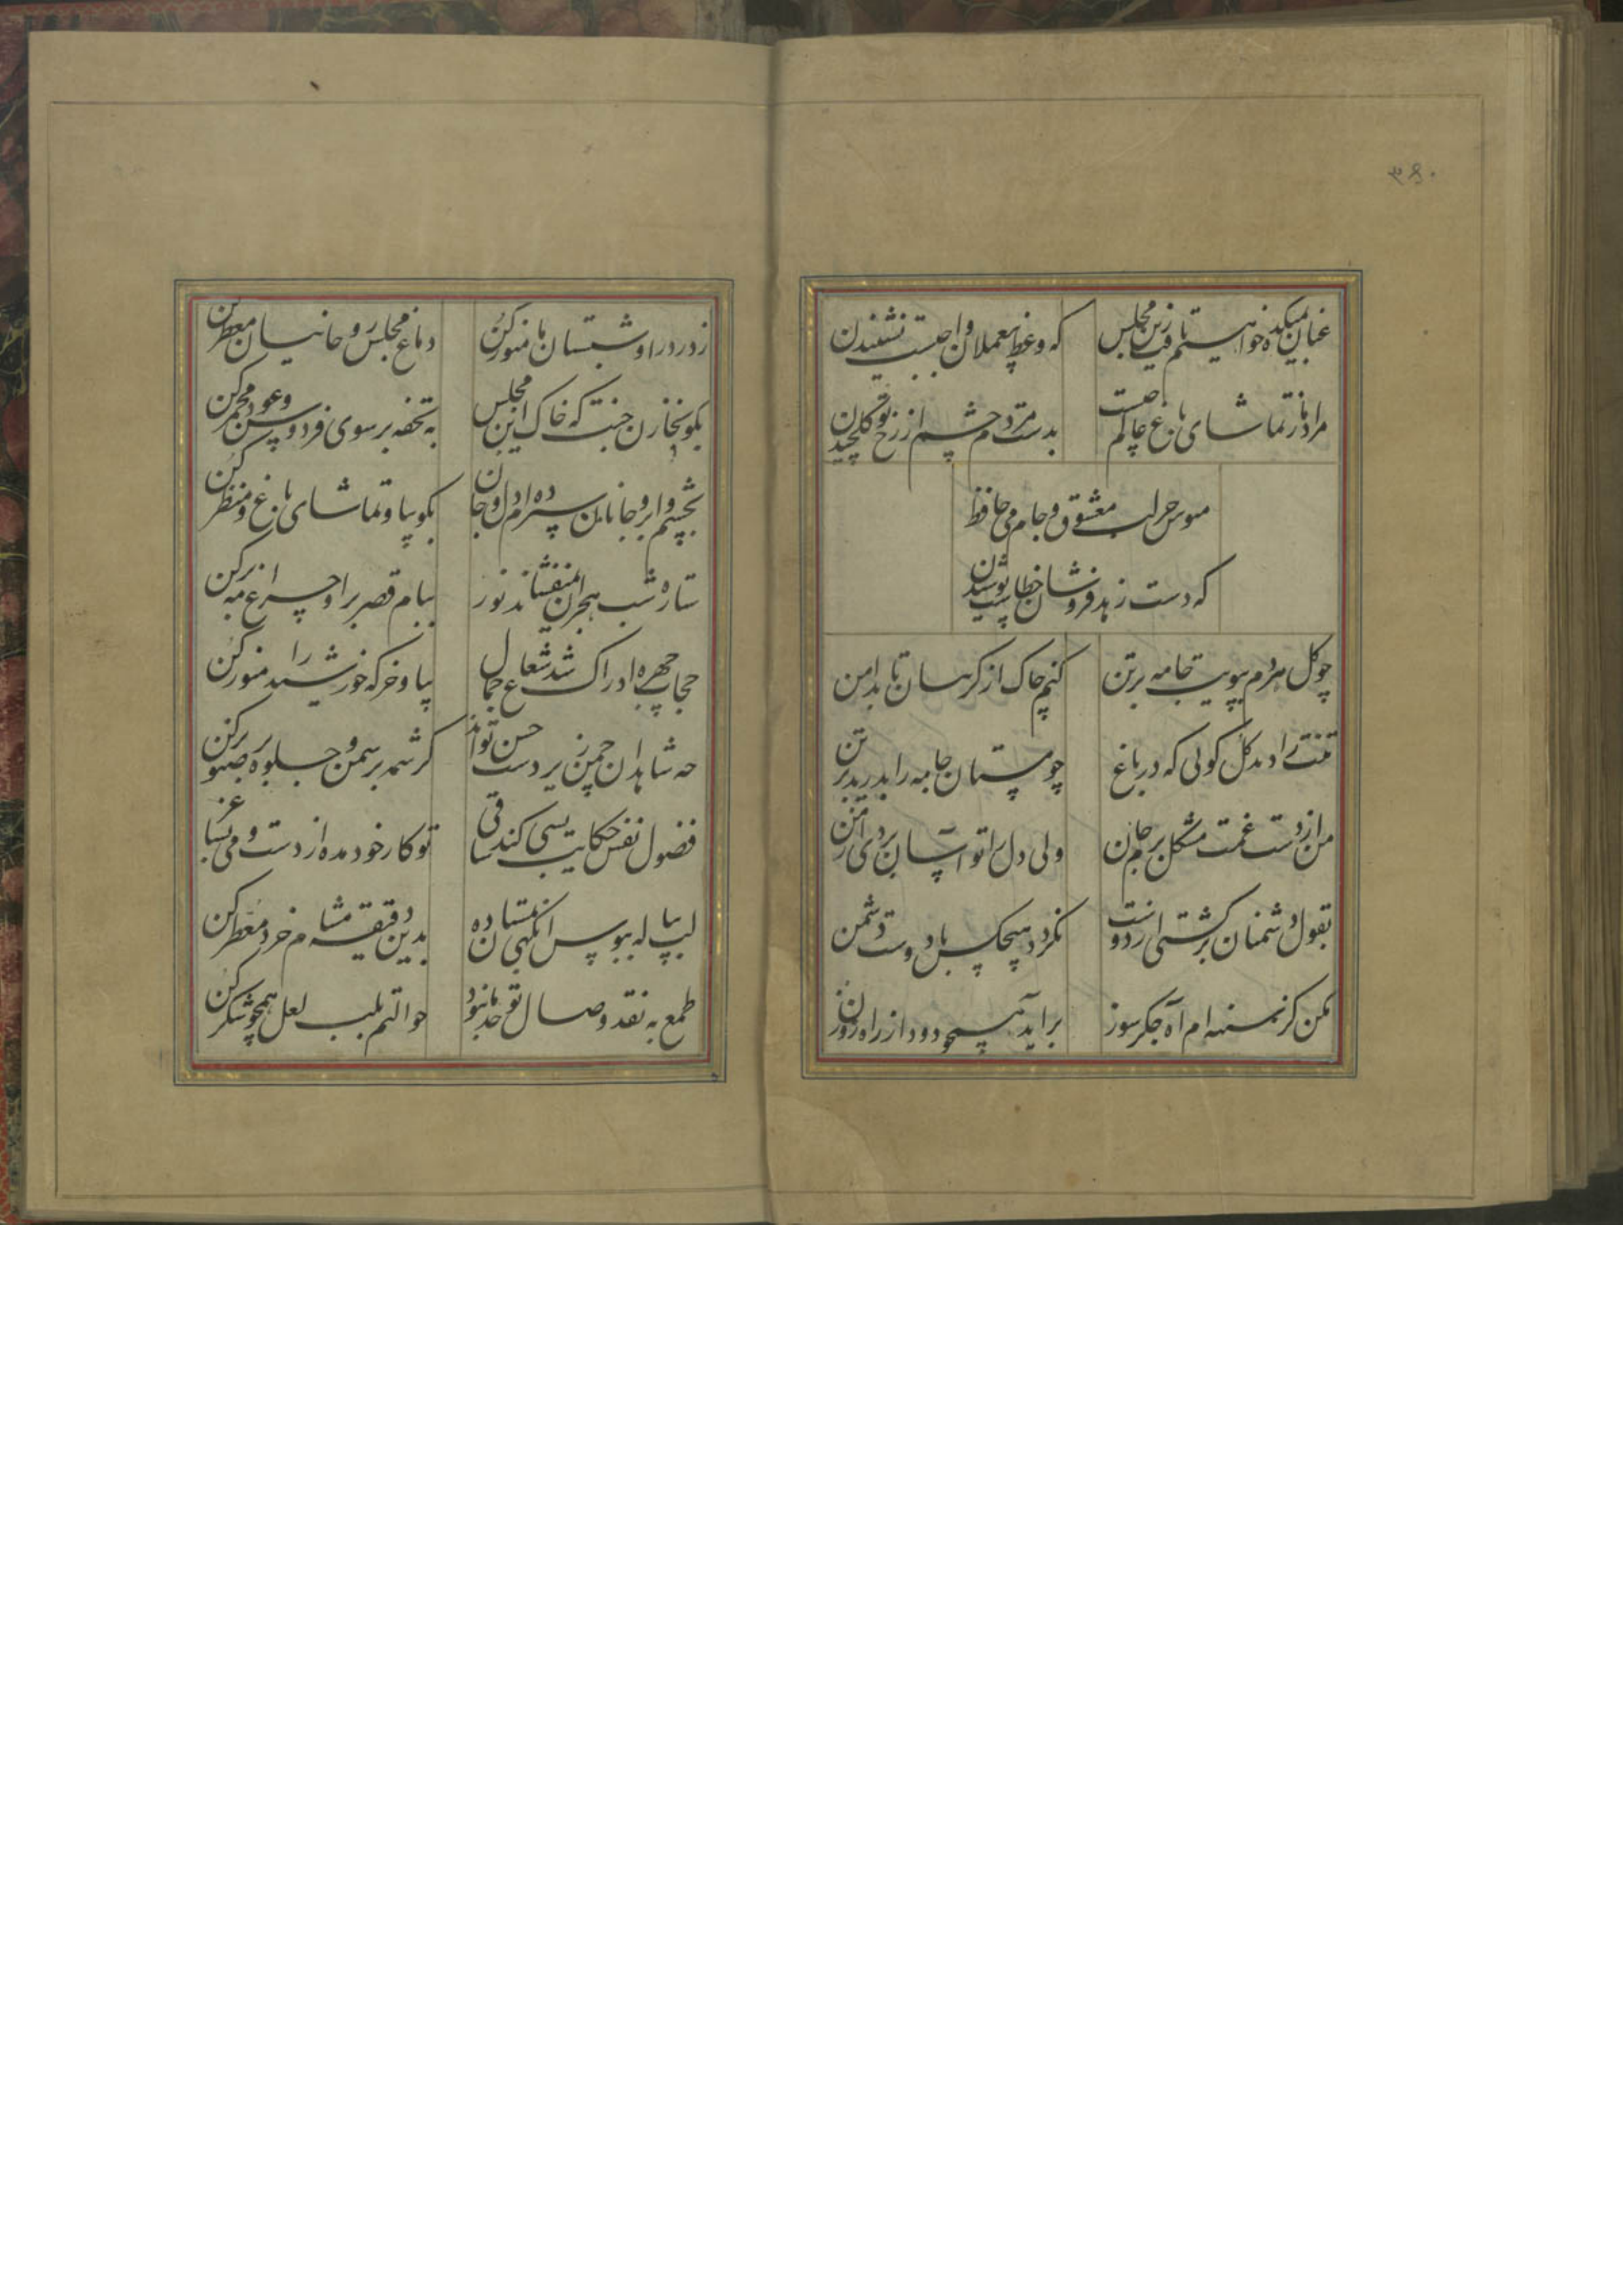 ۳۴۰
عنان بمیکده خواهیم تافت زین مجلس
که وعظ بیعملان واجبست نشنیدن
مراد ما ز تماشای باغ عالم چیست
بدست مردم چشم از رخ تو گل چیدن
مبوس جز لب معشوق و جام می حافظ
که دست زهد فروشان خطاست بوسیدن
چو گل هر دم ببویت جامه بر تن
کنم چاک از گریبان تا بدامن
تنت را دید گل گوئی که در باغ
چو مستان جامه را بدرید بر تن
من از دست غمت مشکل برم جان
ولی دل را تو آسان بردی از من
بقول دشمنان برگشتی از دوست
نگردد هیچکس با دوست دشمن
مکن کز سینه ام آه جگر سوز
برآید همچو دود از راه روزن
ز در درا و شبستان ما منور کن
دماغ مجلس روحانیان معطر کن
بگو بخازن جنت که خاک این مجلس
به تحفه بر سوی فردوس و عود مجمر کن
بچشم و ابروی جانان سپرده ام دل و جان
بگو بیا و تماشای باغ و منظر کن
ستاره شب هجران نمیفشاند نور
ببام قصر برا و چراغ مه برکن
حجاب چهره ادراک شد شعاع جمال
بیا و خرگه خورشید را منور کن
چه شاهدان چمن زیر دست حسن تواند
کرشمه بر سمن و جلوه بر صنوبر کن
فضول نفس حکایت بسی کند ساقی
تو کار خود مده از دست و می بساغر کن
لب پیاله ببوس آنگهی بمستان ده
بدین دقیقه مشام خرد معطر کن
طمع به نقد وصال تو حد ما نبود
حوالتم بلب لعل همچو شکر کن